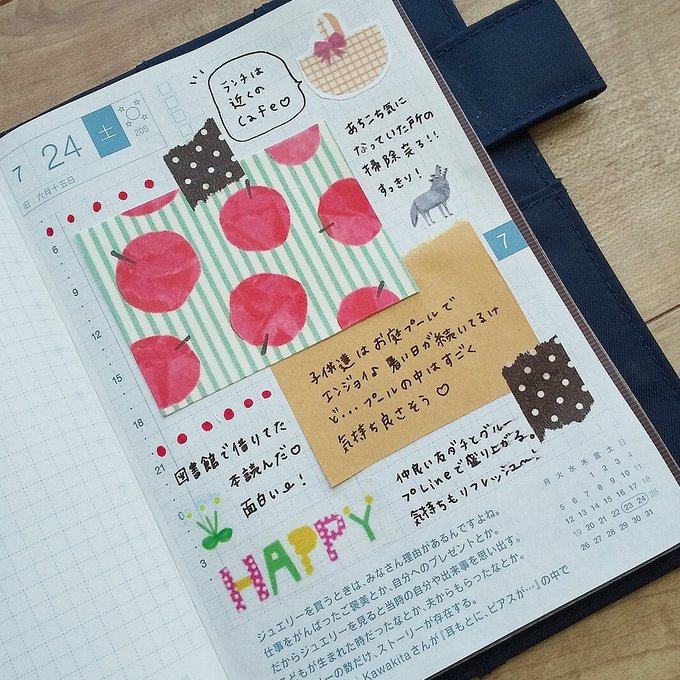 7 24 土
205
旧 六月十五日
ランチは
近くの
Cafe♡
あちこち気に
なっていた所の
掃除完了!!
すっきり!
7
6
9
12
15
18
21
0
3
子供達はお庭プールで
エンジョイな 暑い日が続いてるけ
ど... プールの中はすごく
気持ち良さそう♡
図書館で借りてた
本読んだ♡
面白い!
仲良い友ダチとグルー
プLineで盛り上がる。
気持ちもリフレッシュ〜!
HAPPY
月 火 水 木 金 土 日
1 2 3 4
5 6 7 8 9 10 11
12 13 14 15 16 17 18
19 20 21 22 23 24 25
26 27 28 29 30 31
ジュエリーを買うときは、みなさん理由があるんですよね。
仕事をがんばったご褒美とか、自分へのプレゼントとか。
だからジュエリーを見ると当時の自分や出来事を思い出す。
子どもが生まれた時だったなとか、夫からもらったなとか。
リーの数だけ、ストーリーが存在する。
Kawakitaさんが『耳もとに、ピアスが…』の中で